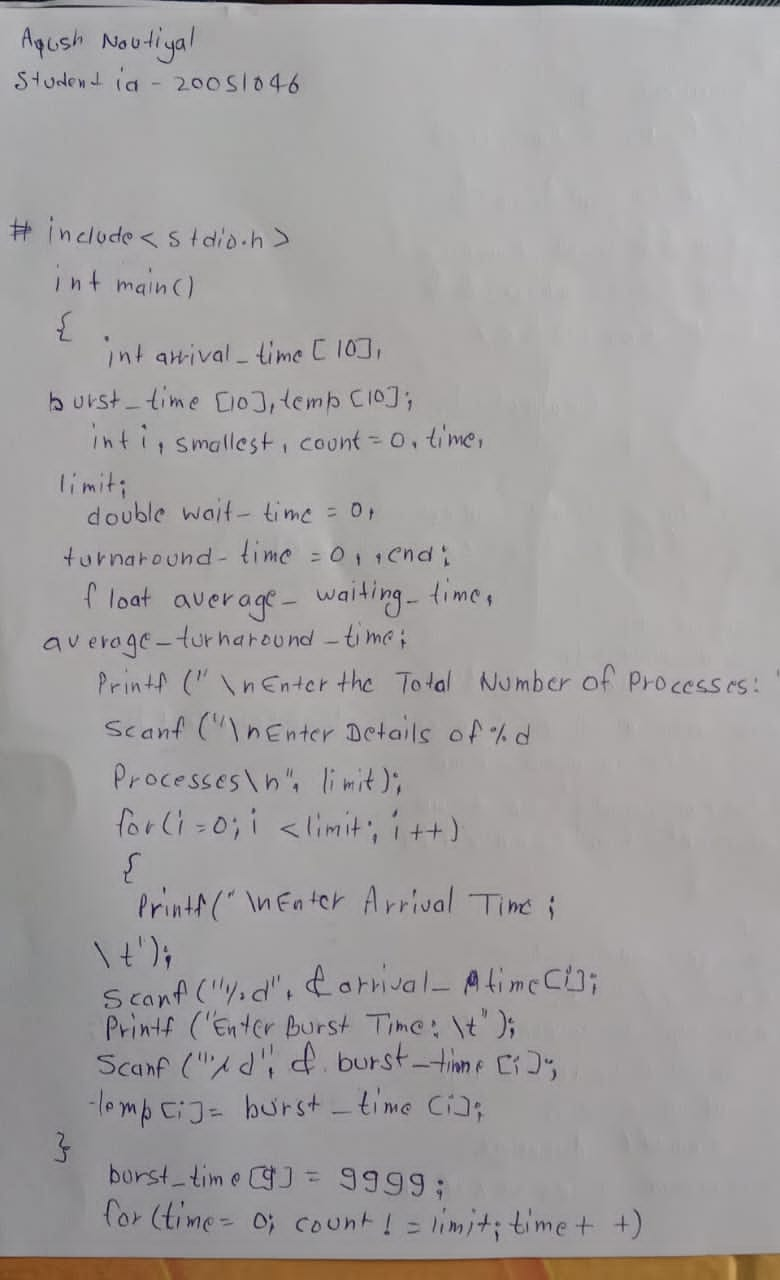 Aqush Nautiyal
Student id - 20051046
# include < stdio.h >
int main()
{
int arrival_time [10],
burst_time [10], temp [10];
int i, smallest, count = 0, time,
limit;
double wait- time = 0,
turnaround- time = 0, , end;
float average_ waiting_ time,
average_turnaround_time;
Printf (" \nEnter the Total Number of Processes: "
Scanf ("\nEnter Details of %d
Processes\n", limit);
for(i = 0; i < limit; i ++)
{
Printf(" \nEnter Arrival Time ;
\t");
Scanf ("%d", & arrival_ time[i];
Printf ("Enter Burst Time: \t");
Scanf ("%d", & burst_time [i];
temp[i] = burst_time [i];
}
burst_time[9] = 9999;
for (time = 0; count ! = limit; time + +)